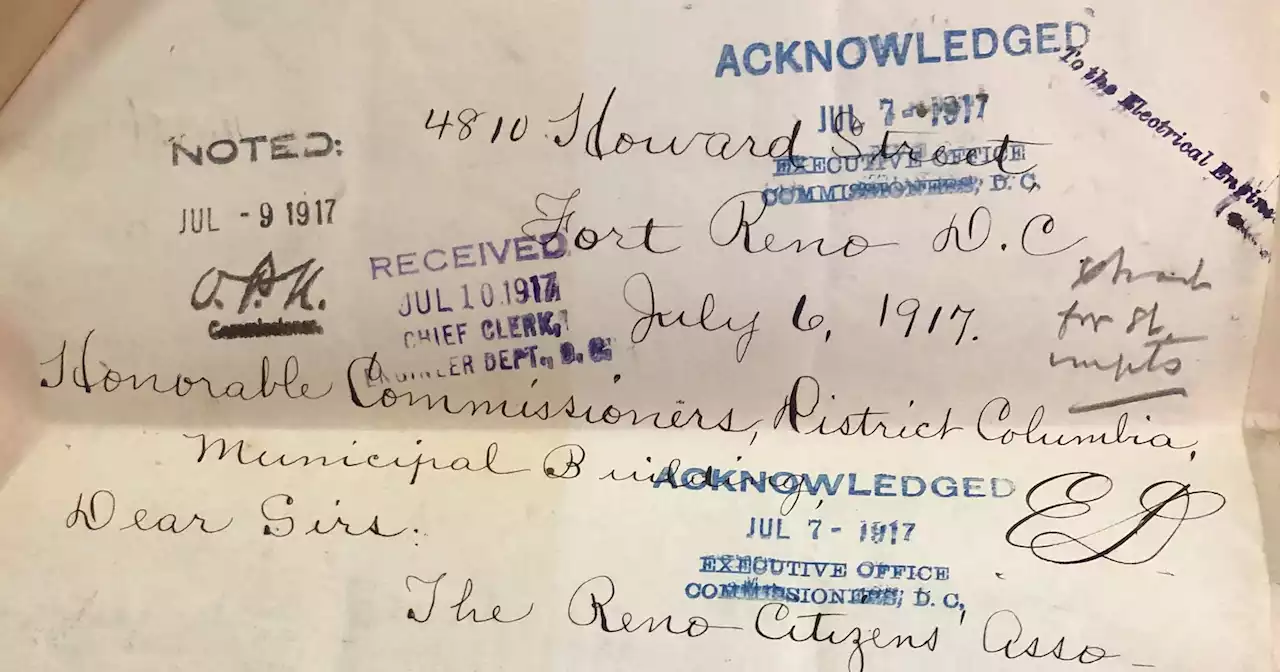 ACKNOWLEDGED
To the Electrical Engine
JUL 7 - 1917
4810 Howard Street
NOTED:
EXECUTIVE OFFICE
COMMISSIONERS, D. C.
JUL - 9 1917
Fort Reno D.C
RECEIVED
JUL 10 1917
Commissioner.
CHIEF CLERK,
July 6, 1917.
for St.
ENGINEER DEPT., D. C.
Honorable Commissioners, District Columbia,
Municipal Building,
ACKNOWLEDGED
Dear Sirs:
JUL 7 - 1917
EXECUTIVE OFFICE
COMMISSIONERS, D. C.
The Reno Citizens' Asso